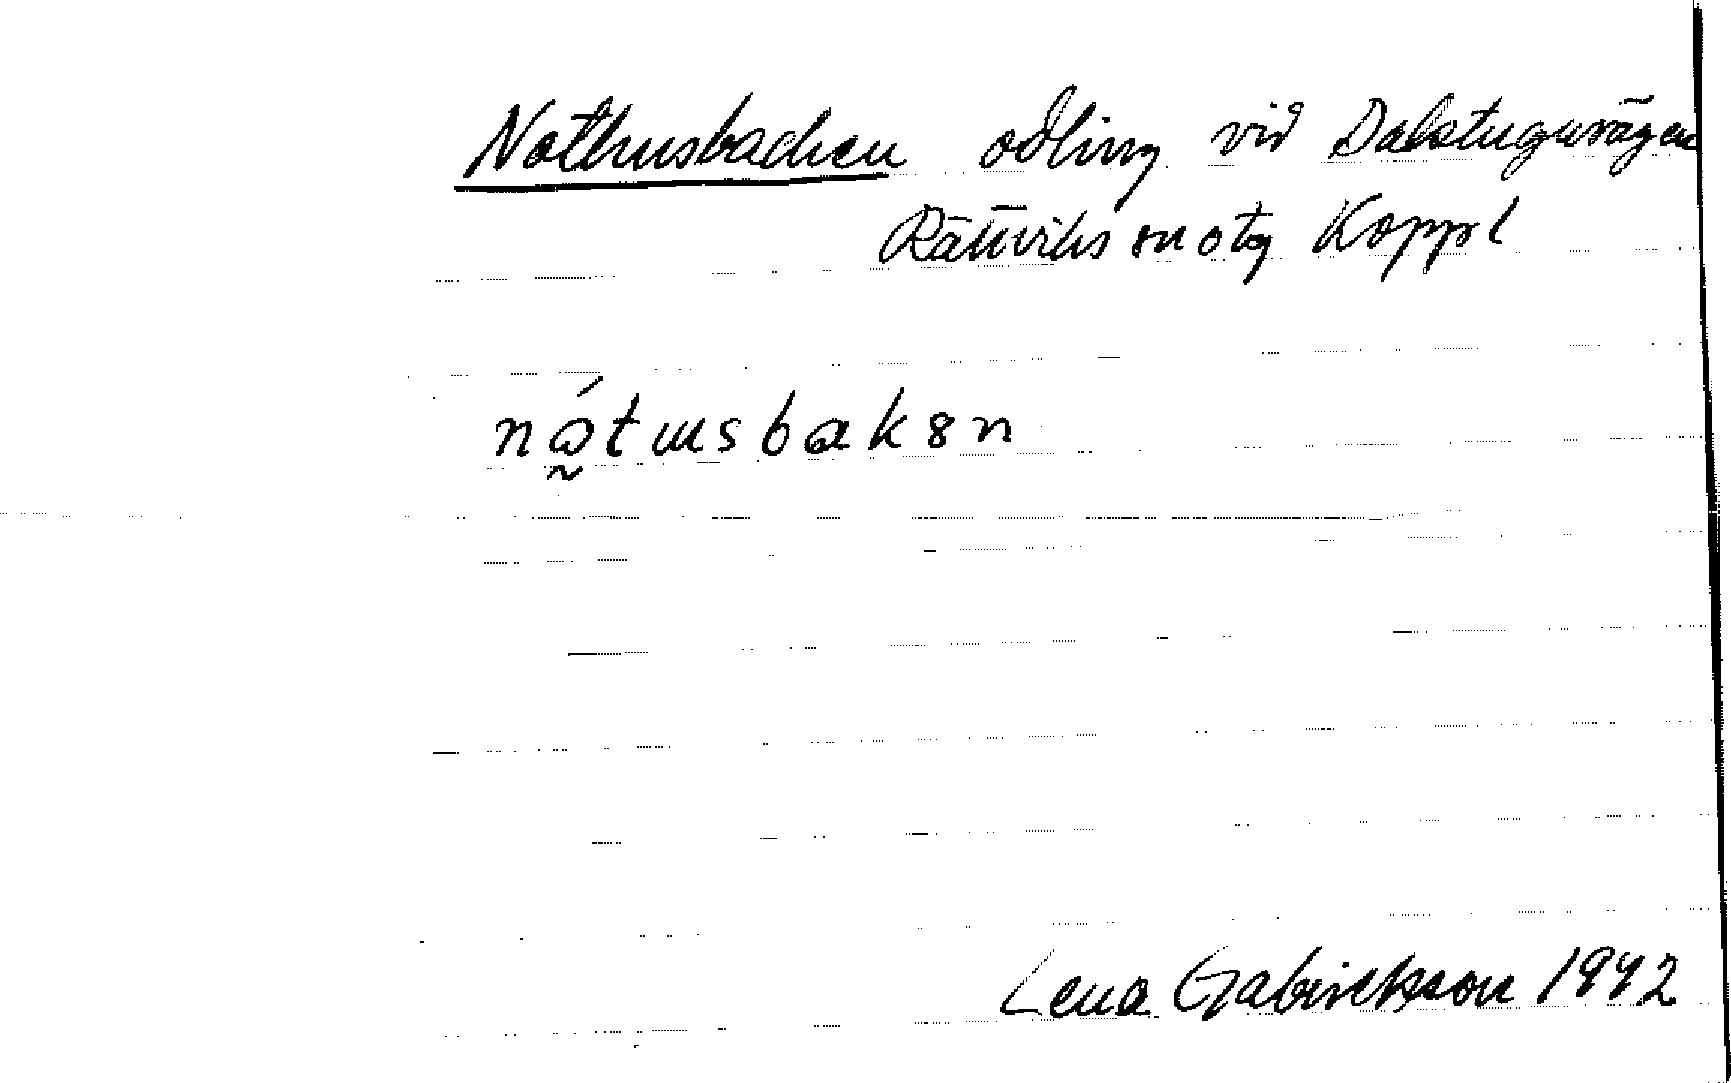 Nothusbacken odling vid Dalstuguvägen
Rättviks sn otg Koppl
nǻ̰tusbakən
Lena Gabrielsson 1942